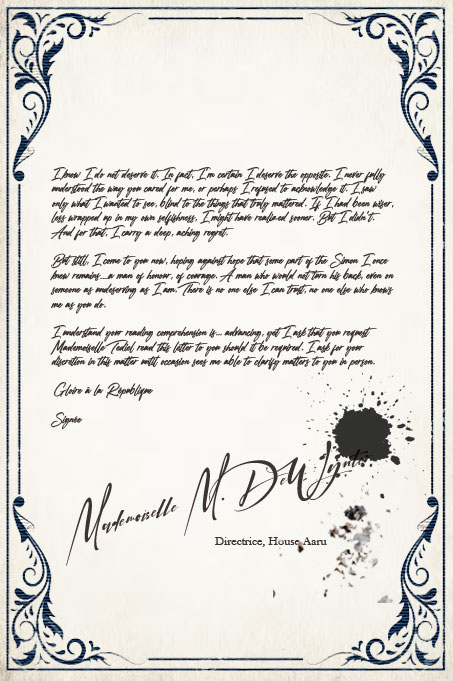 I know I do not deserve it. In fact, I'm certain I deserve the opposite. I never fully
understood the way you cared for me, or perhaps I refused to acknowledge it. I saw
only what I wanted to see, blind to the things that truly mattered. If I had been wiser,
less wrapped up in my own selfishness, I might have realized sooner. But I didn't.
And for that, I carry a deep, aching regret.
But still, I come to you now, hoping against hope that some part of the Simon I once
knew remains...a man of honour, of courage. A man who would not turn his back, even on
someone as undeserving as I am. There is no one else I can trust, no one else who knows
me as you do.
I understand your reading comprehension is... advancing, yet I ask that you request
Mademoiselle Tediel read this letter to you should it be required. I ask for your
discretion in this matter until occasion sees me able to clarify matters to you in person.
Gloire à la République
Signée
Mademoiselle M. DeWynter
Directrice, House Aaru